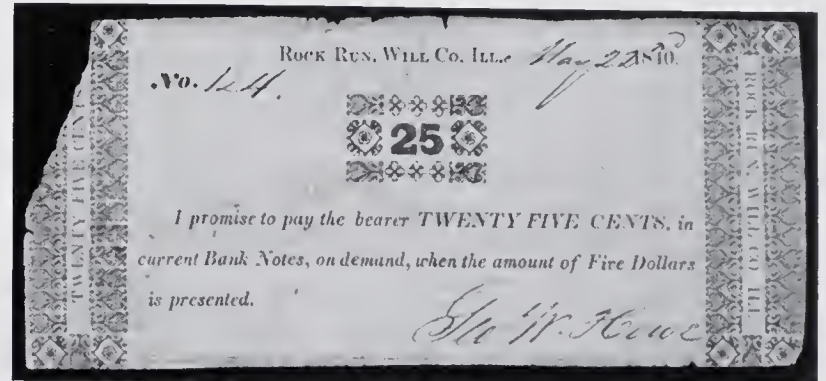 ROCK RUN, WILL CO. ILL. May 22d 1840.
No. 144.
25
I promise to pay the bearer TWENTY FIVE CENTS, in
current Bank Notes, on demand, when the amount of Five Dollars
is presented.
Geo W. Howe
TWENTY FIVE CENT
ROCK RUN, WILL CO. ILL